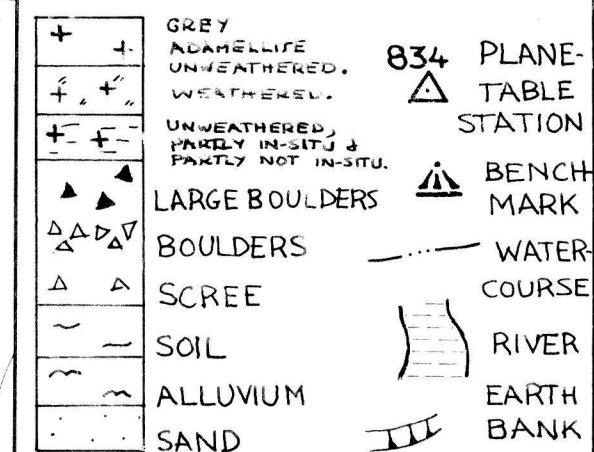 GREY
ADAMELLITE
UNWEATHERED.
WEATHERED.
UNWEATHERED,
PARTLY IN-SITU &
PARTLY NOT IN-SITU.
LARGE BOULDERS
BOULDERS
SCREE
SOIL
ALLUVIUM
SAND
834 PLANE-
TABLE
STATION
BENCH
MARK
WATER-
COURSE
RIVER
EARTH
BANK